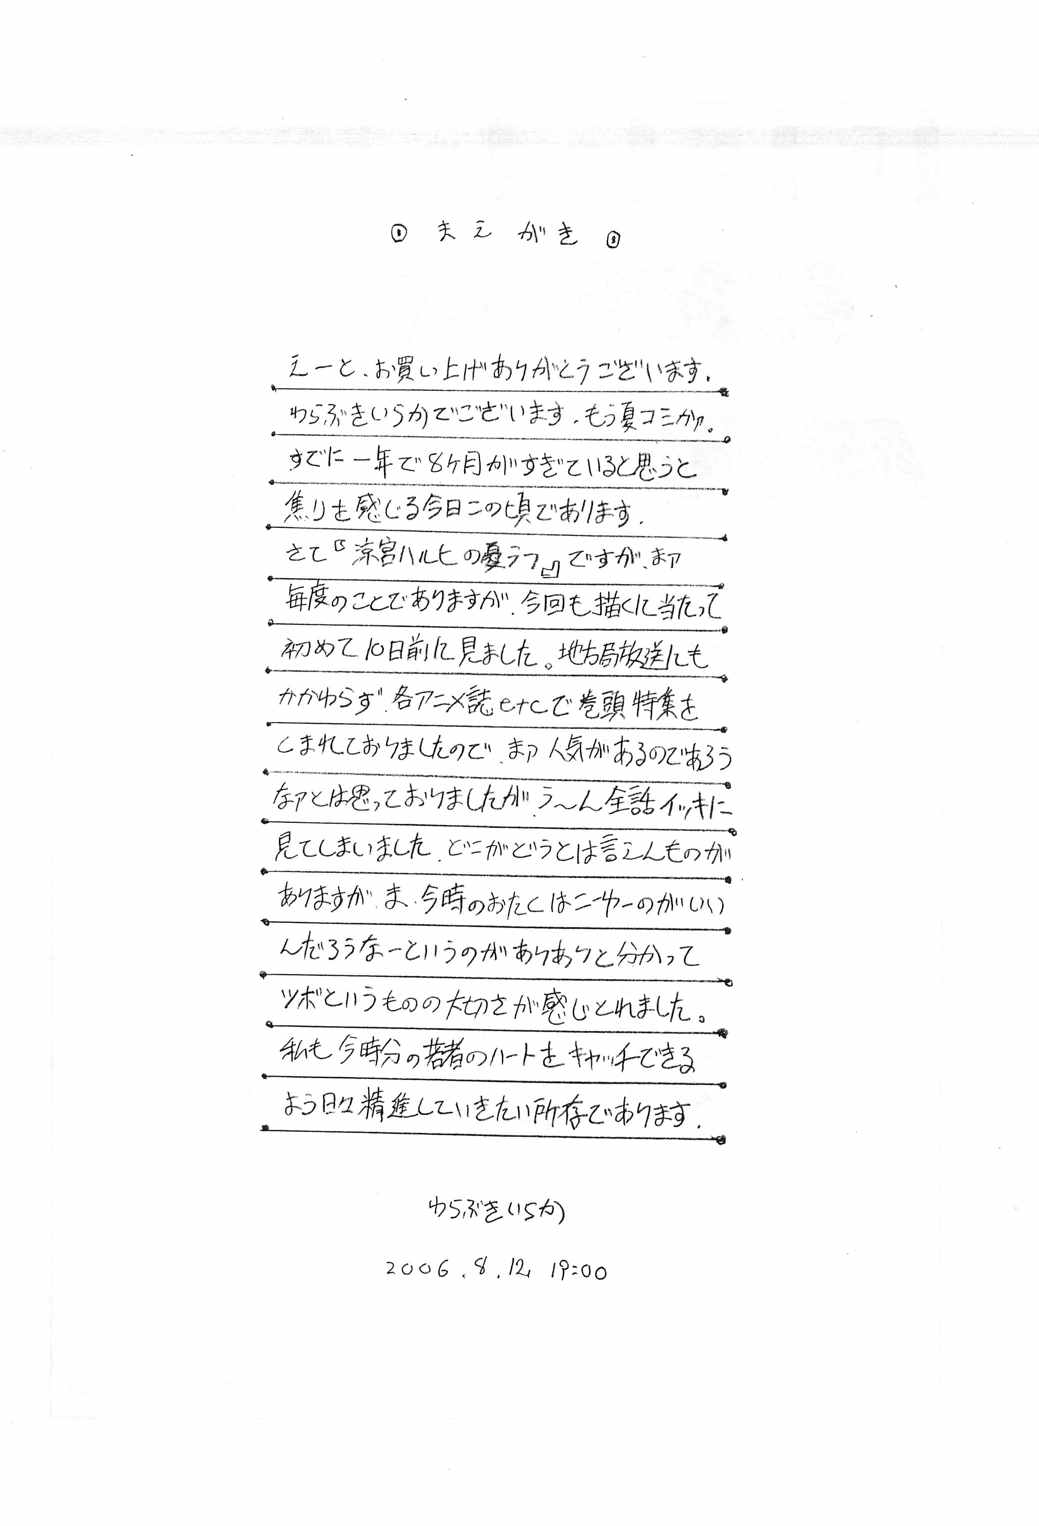 まえがき
えーと、お買い上げありがとうございます.
わらぶきいらかでございます.もう夏コミかァ。
すでに一年で8ケ月がすぎていると思うと
焦りを感じる今日この頃であります.
さて『涼宮ハルヒの憂ラフ』ですが、まァ
毎度のことでありますが、今回も描くに当たって
初めて10日前に見ました。地方局放送にも
かかわらず、各アニメ誌etcで巻頭特集を
しまれておりましたので、まァ人気があるのであろう
なァとは思っておりましたが、う〜ん全話イッキに
見てしまいました、どこがどうとは言えんものが
ありますが、ま、今時のおたくはこーゆーのがいい
んだろうなーというのがありありと分かって
ツボというものの大切さが感じとれました。
私も今時分の若者のハートをキャッチできる
よう日々精進していきたい所存であります.
わらぶきいらか
2006.8.12 19:00